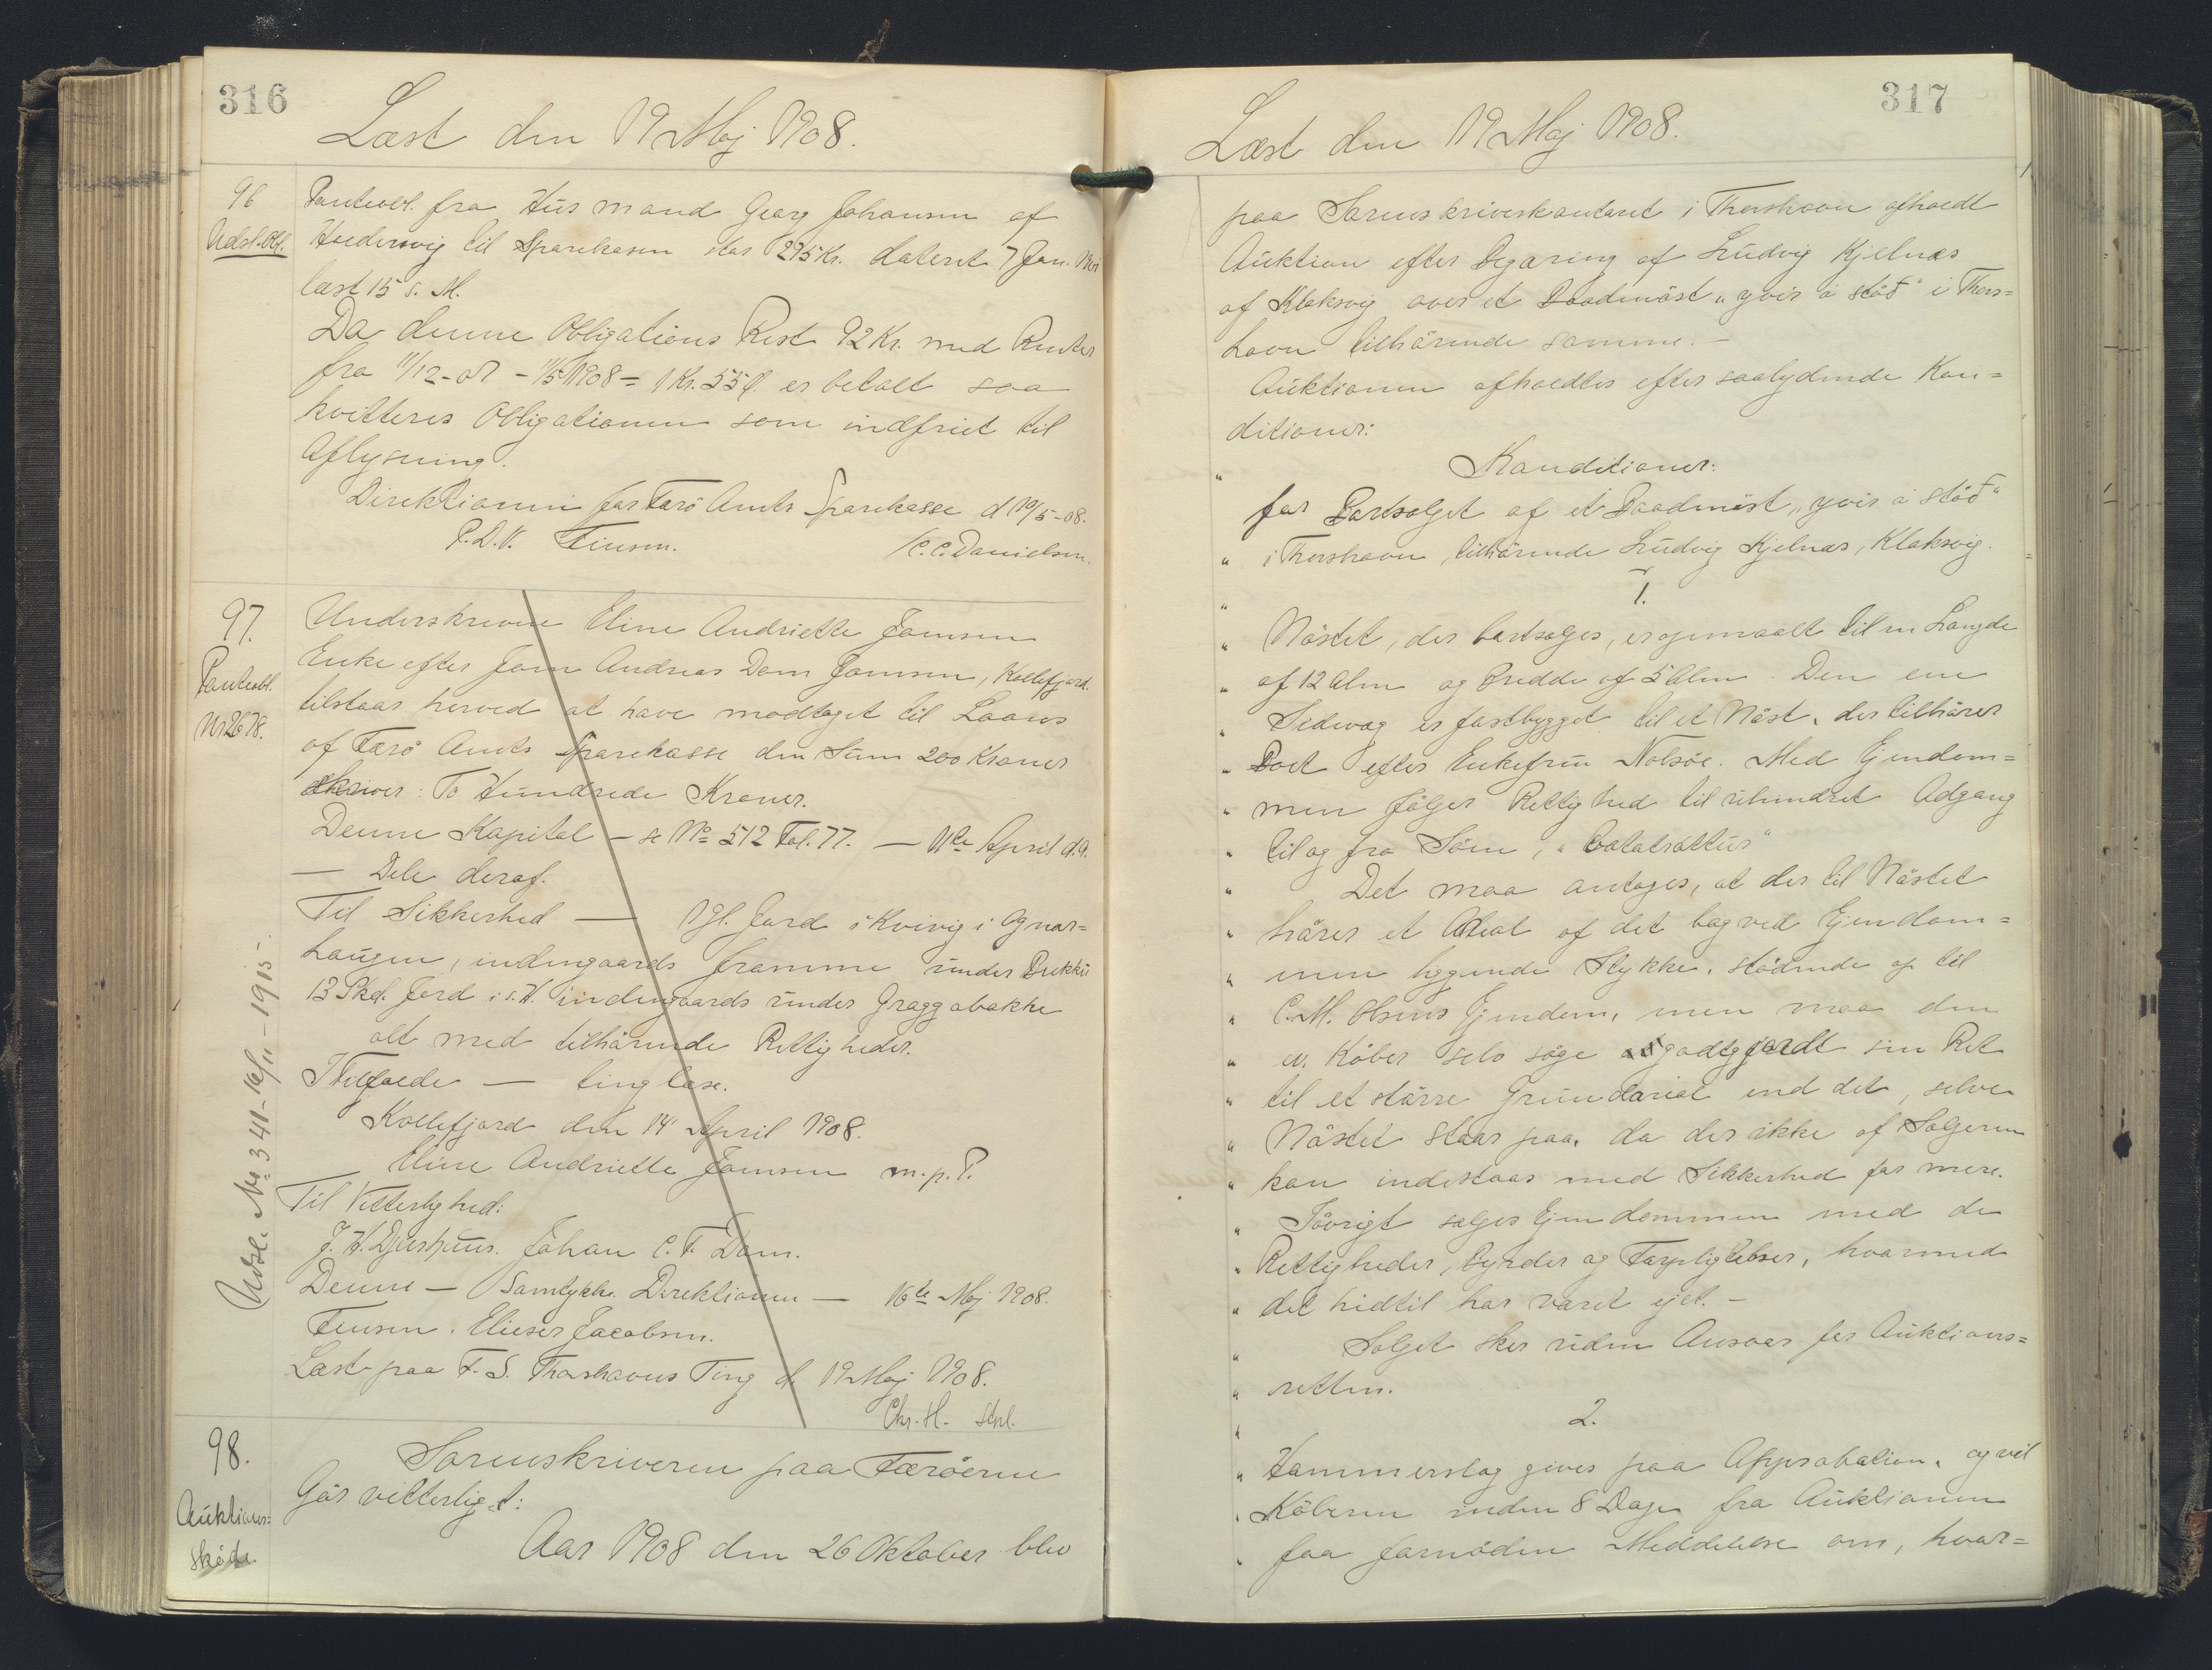 316
Læst den 19 Maj 1908.
96
Udsl. Obl.
Panteobl. fra Husmand Georg Johansen af
Haldersvig til Sparekasen stor 295 Kr. dateret 7 Jan.
læst 15 s. M.
Da denne Obligations Rest 92 Kr. med Renter
fra 11/12-07 - 11/5 1908 = 1 Kr. 55 Ø. er betalt saa
kvitteres Obligationen som indfriet til
Aflysning.
Direktionen for Færö Amts Sparekasse d 19/5-08.
P.D.V. Finsen. C.C. Danielsen.
97.
Panteobl.
Nr 2678.
Underskrevne Eline Andriette Joensen
Enke efter Joen Andreas Dam Joensen, Kollefjord.
tilstaar herved at have modtaget til Laans
af Færö Amts Sparekasse den Sum 200 Kroner
skriver: To Hundrede Kroner.
Denne Kapital - se No 512 Fol. 77. — 11te April d.A.
— Dele deraf.
Til Sikkerhed — 1 Gl. Jord i Kvivig i Ognar=
haugen, indengaards framme under Brekku
13 Skd. Jord i s. H. indengaards under Graggabakke
alt med tilhørende Rettigheder.
I Tilfælde — tinglæse.
Kollefjord den 14 April 1908.
Eline Andriette Joensen m.p.P.
Til Vitterlighed:
J. H. Djurhuus. Johan C. F. Dam.
Denne — Samtykke. Direktionen — 16te Maj 1908.
Finsen. Elieser Jacobsen.
Læst paa F. S. Thorshavns Ting d. 19 Maj 1908.
Chr. H. Stnl.
Udsl. No 341 - 16/11 - 1915.
98.
Auktions=
skøde
Sorenskriveren paa Færöerne
Gör vitterligt:
Aar 1908 den 26 Oktober blev
317
Læst den 19 Maj 1908.
paa Sorenskriverkontoret i Thorshavn afholdt
Auktion efter Begæring af Ludvig Kjelnæs
af Klaksvig over et Baadenöst „yvir á stöð" i Thors=
havn tilhörende samme. -
Auktionen afholdtes efter saalydende Kon=
ditioner:
Konditioner:
for Bortsalget af et Baadenöst „yvir á stöð"
i Thorshavn, tilhörende Ludvig Kjelnæs, Klaksvig.
1.
Nöstet, der bortsælges, er opmaalt til en Længde
af 12 Alen og Bredde af 5 Alen. Den ene
Sidevæg er fastbygget til et Nöst, der tilhörer
Boet efter Enkefru Nolsöe. Med Ejendom=
men fölger Rettighed til uhindret Adgang
til og fra Söen, „bátadráttur"
Det maa antages, at der til Nöstet
hörer et Areal af det bag ved Ejendom=
men liggende Stykke, stödende op til
C. M. Olsens Ejendom, men maa den
ev. Köber selv söge godtgjordt sin Ret
til et större Grundareal end det, selve
Nöstet staar paa, da der ikke af Sælgeren
kan indestaas med Sikkerhed for mere.
Iövrigt sælges Ejendommen med de
Rettigheder, Byrder og Forpligtelser, hvormed
det hidtil har været ejet. -
Salget sker uden Ansvar for Auktions=
retten.
2.
Hammerslag gives paa Approbation, og vil
Köberen inden 8 Dage fra Auktionen
faa fornöden Meddelelse om, hvor=